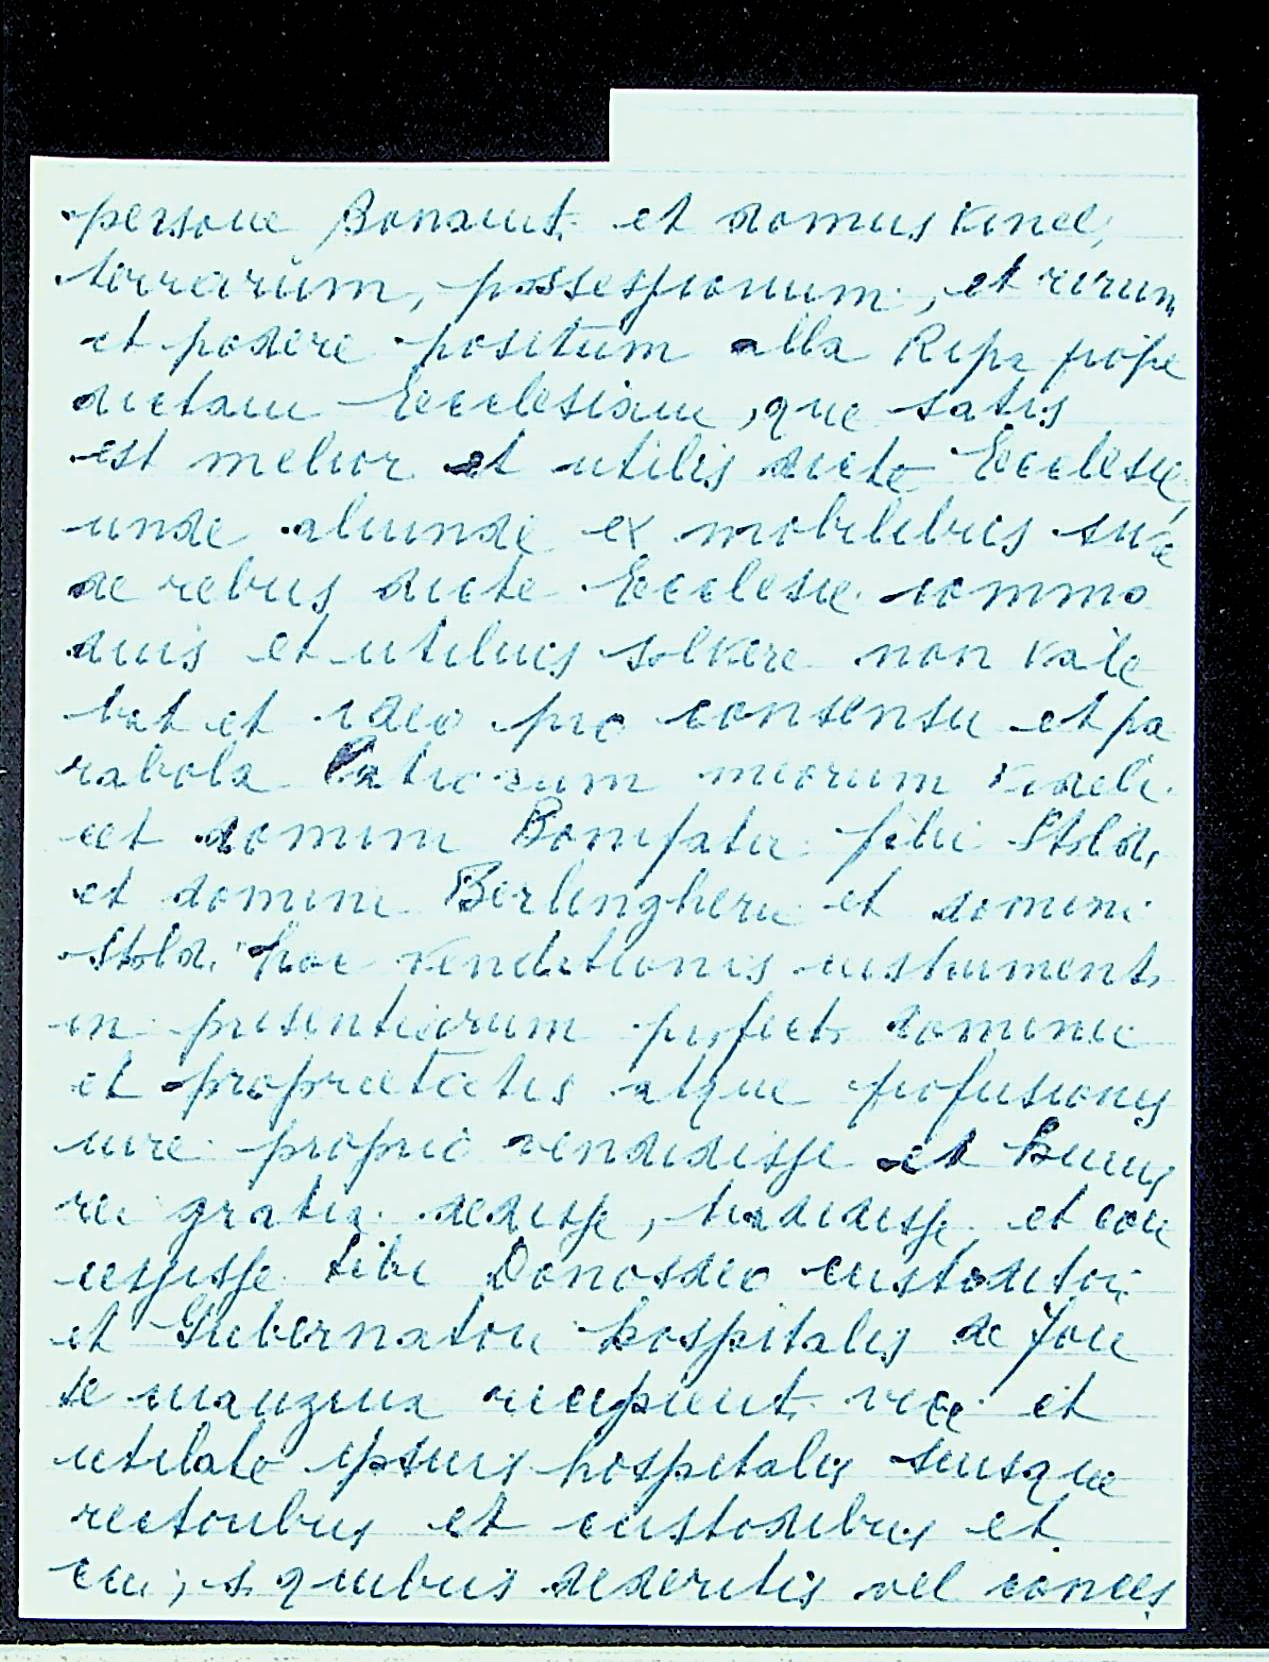 persone Bonaiut. et domus vinee,
terrarum, possessionum, et rerum
et podere positum alla Ripa prope
dictam Ecclesiam, que satis
est melior et utilis dicte Ecclesie,
unde aliunde ex mobilibus sive
de rebus dicte Ecclesie commo
dius et utilius solvere non vale
bat et ideo pro consensu et pa
rabola Patronum meorum videli
cet domini Bonifatii filii Stoldi
et domini Berlingherii et domini
Stoldi hoc venditionis instrumento
in presentiarum perfecti dominii
et proprietatis atque possessionis
iure proprio vendidisse et huius
rei gratia dedisse, tradidisse et con
cessisse tibi Donosdeo custoditori
et Gubernatori hospitalis de Fon
te manzina recipienti vice et
utilitate ipsius hospitalis suisque
rectoribus et custodibus et
cui, s. quibus dederitis vel conces